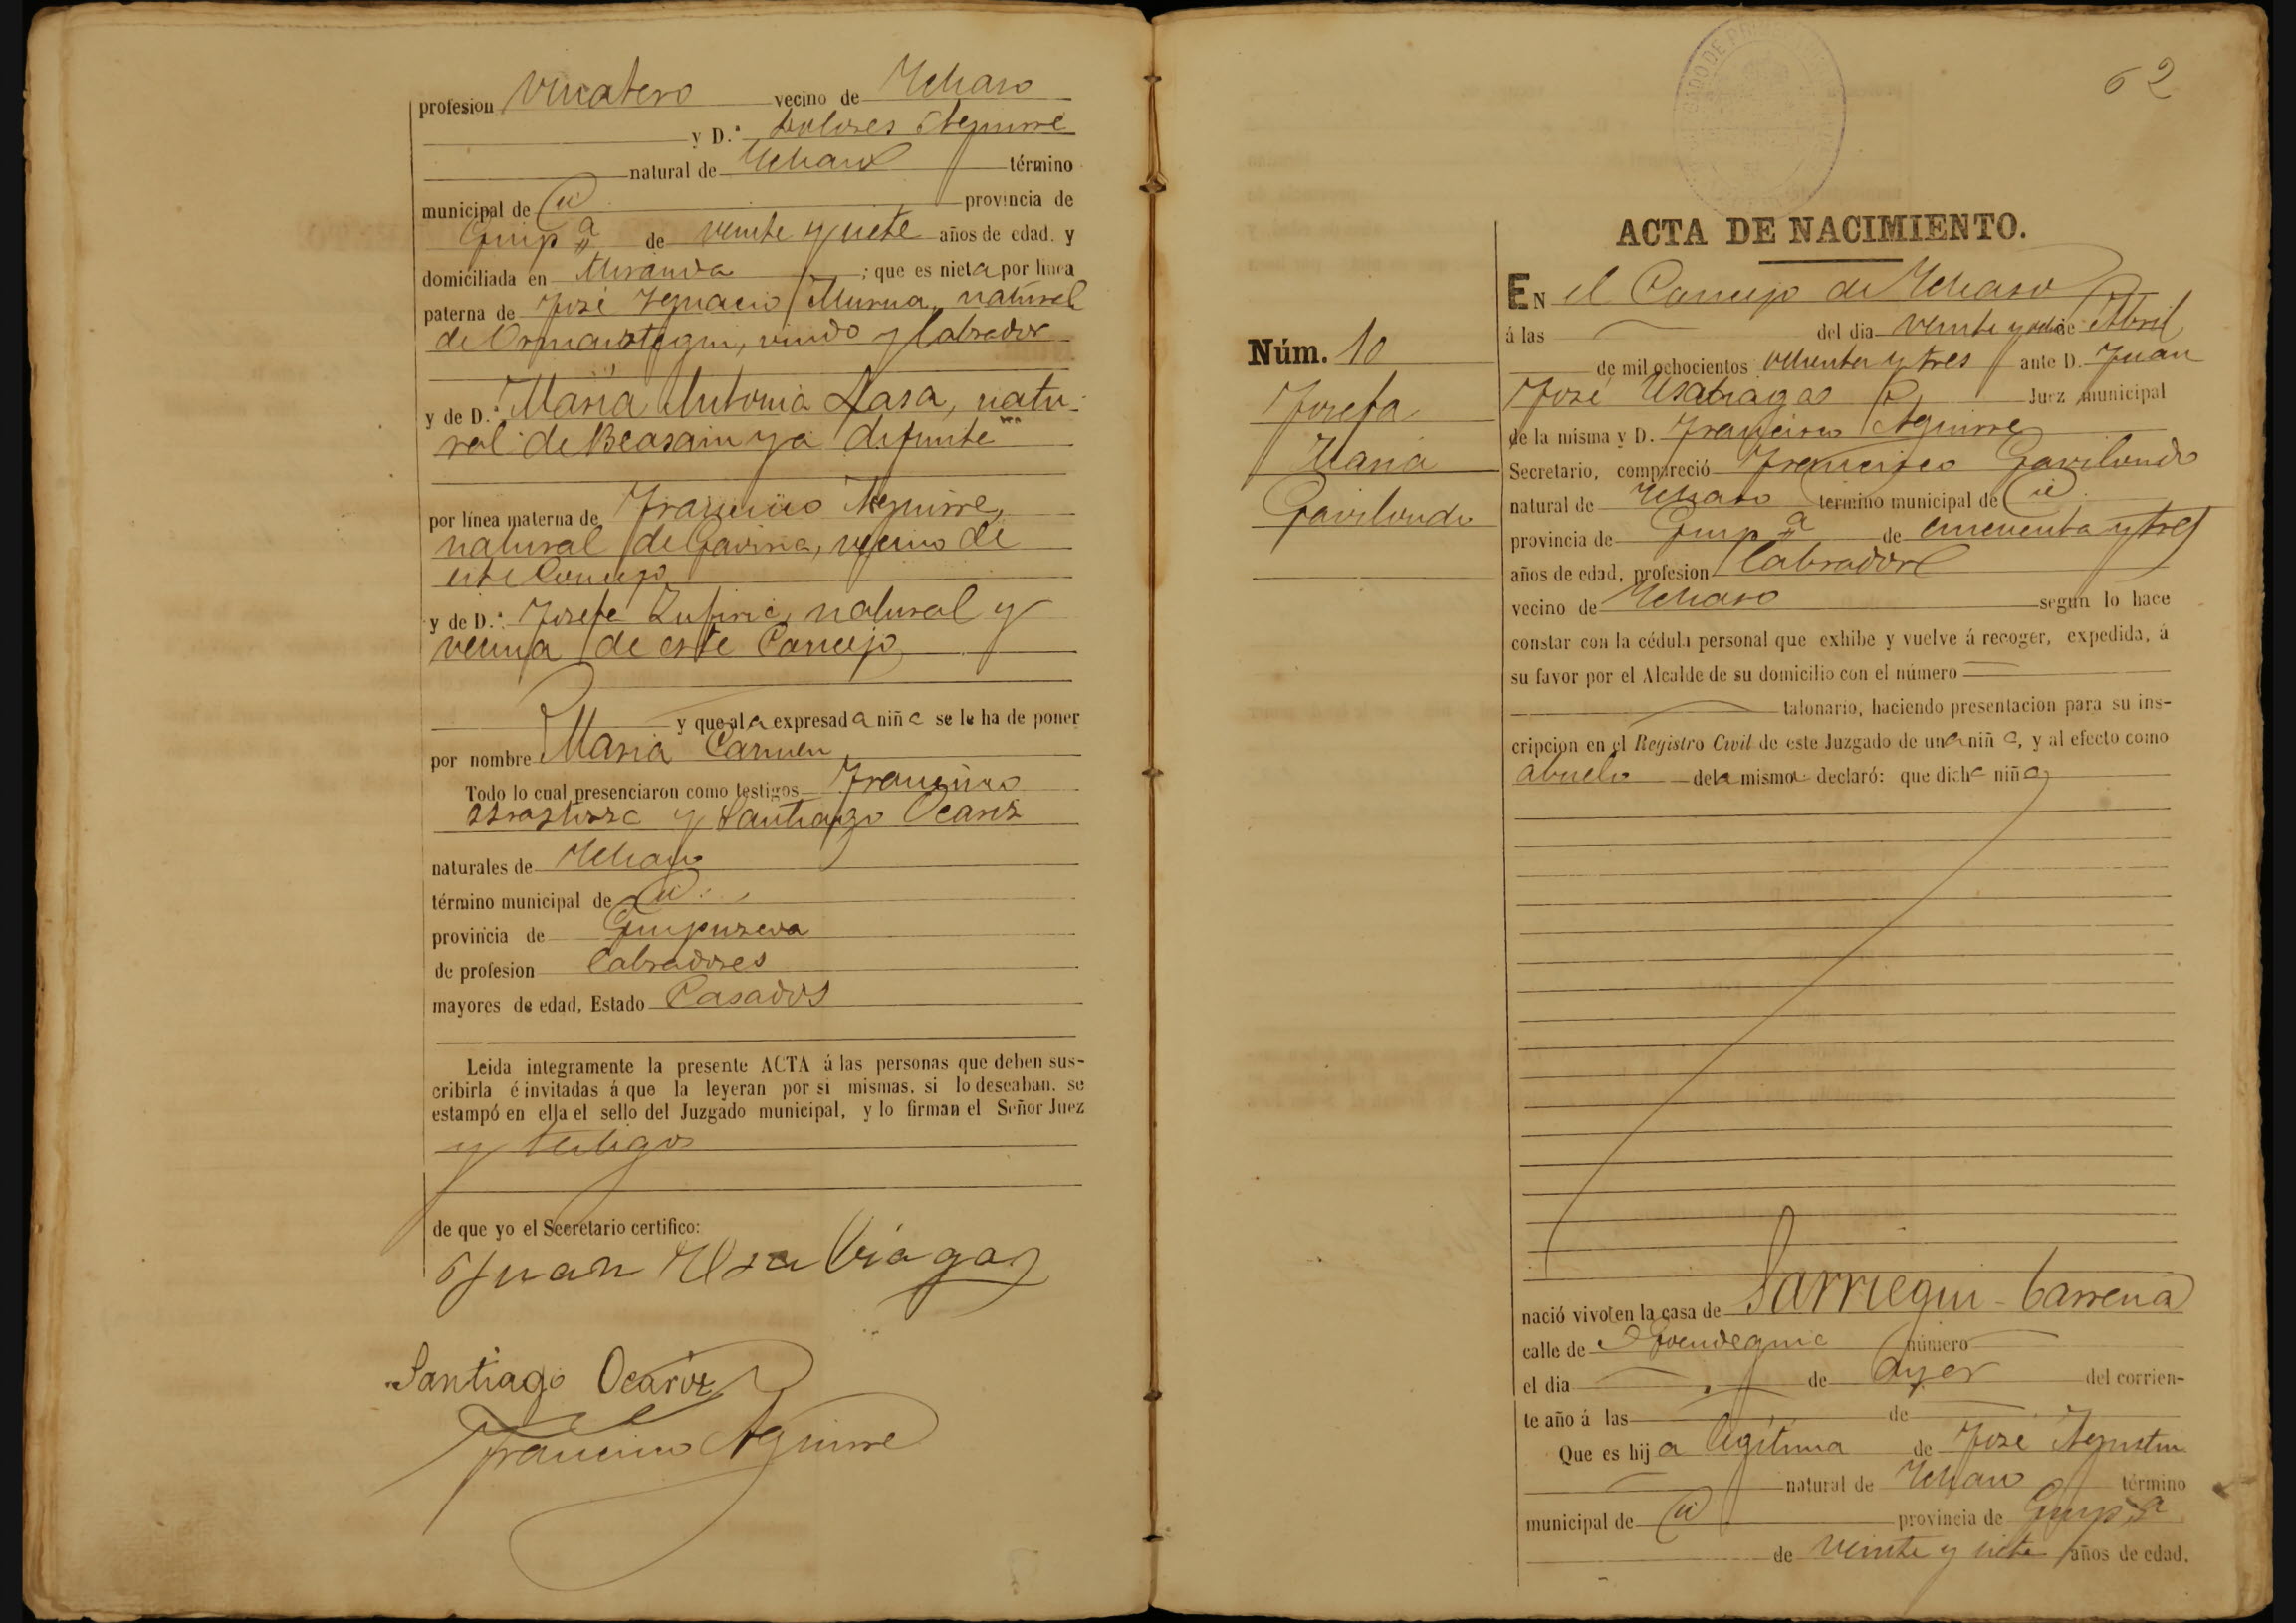 profesion vecino de Ichaso
y D.ª Dolores Aguirre
natural de Ichaso término
municipal de id provincia de
Guipª de veinte y siete años de edad, y
domiciliada en Miranda ; que es nieta por línea
paterna de José Ygnacio Murua, natural
de Ormaiztegui, viudo y labrador
y de D.ª Maria Antonia Lasa, natu-
ral de Beasain ya difunte
por línea materna de Francisco Aguirre,
natural de Gaviria, vecino de
este Concejo
y de D.ª Josefa Zufiria, natural y
vecina de este Concejo
y que al a expresada niña se le ha de poner
por nombre Maria Carmen
Todo lo cual presenciaron como testigos Francisco
y Santiago Ocariz
naturales de Ichaso
término municipal de id.
provincia de Guipuzcoa
de profesion labradores
mayores de edad, Estado Casados
Leida integramente la presente ACTA á las personas que deben sus-
cribirla é invitadas á que la leyeran por si mismas, si lo deseaban, se
estampó en ella el sello del Juzgado municipal, y lo firman el Señor Juez
y testigos
de que yo el Secretario certifico:
Juan Usabiaga
Santiago Ocariz
Francisco Aguirre
62
ACTA DE NACIMIENTO.
Núm. 10
Josefa
Maria
Gavilondo
EN el Concejo de Ichaso
á las del dia veinte y de Abril
de mil ochocientos ochenta y tres ante D. Juan
José Usabiaga Juez municipal
de la misma y D. Francisco Aguirre
Secretario, compareció Francisco Gavilondo
natural de Ichaso término municipal de id.
provincia de Guipª de cincuenta y tres
años de edad, profesion labrador
vecino de Ichaso segun lo hace
constar con la cédula personal que exhibe y vuelve á recoger, expedida, á
su favor por el Alcalde de su domicilio con el número
talonario, haciendo presentacion para su ins-
cripcion en el Registro Civil de este Juzgado de una niña, y al efecto como
abuelo de la misma declaró: que dicha niña
nació vivo en la casa de Sarriegui-barrena
calle de número
el dia de Ayer del corrien-
te año á las de
Que es hija legitima de José Agustin
natural de Ichaso término
municipal de id provincia de Guipª
de veinte y siete años de edad,